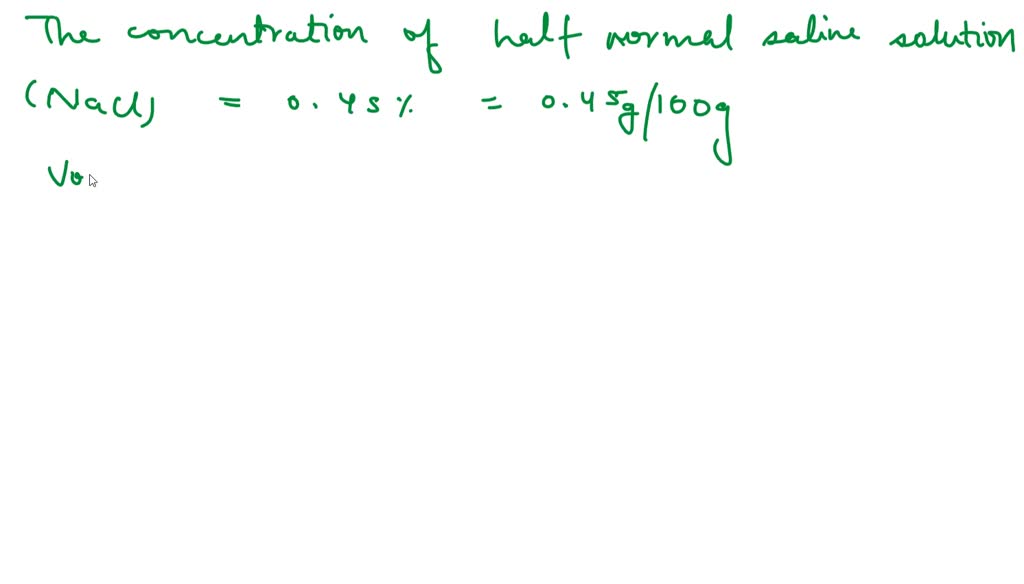 The concentration of half normal saline solution
(NaCl) = 0.45% = 0.45g/100g
Vo